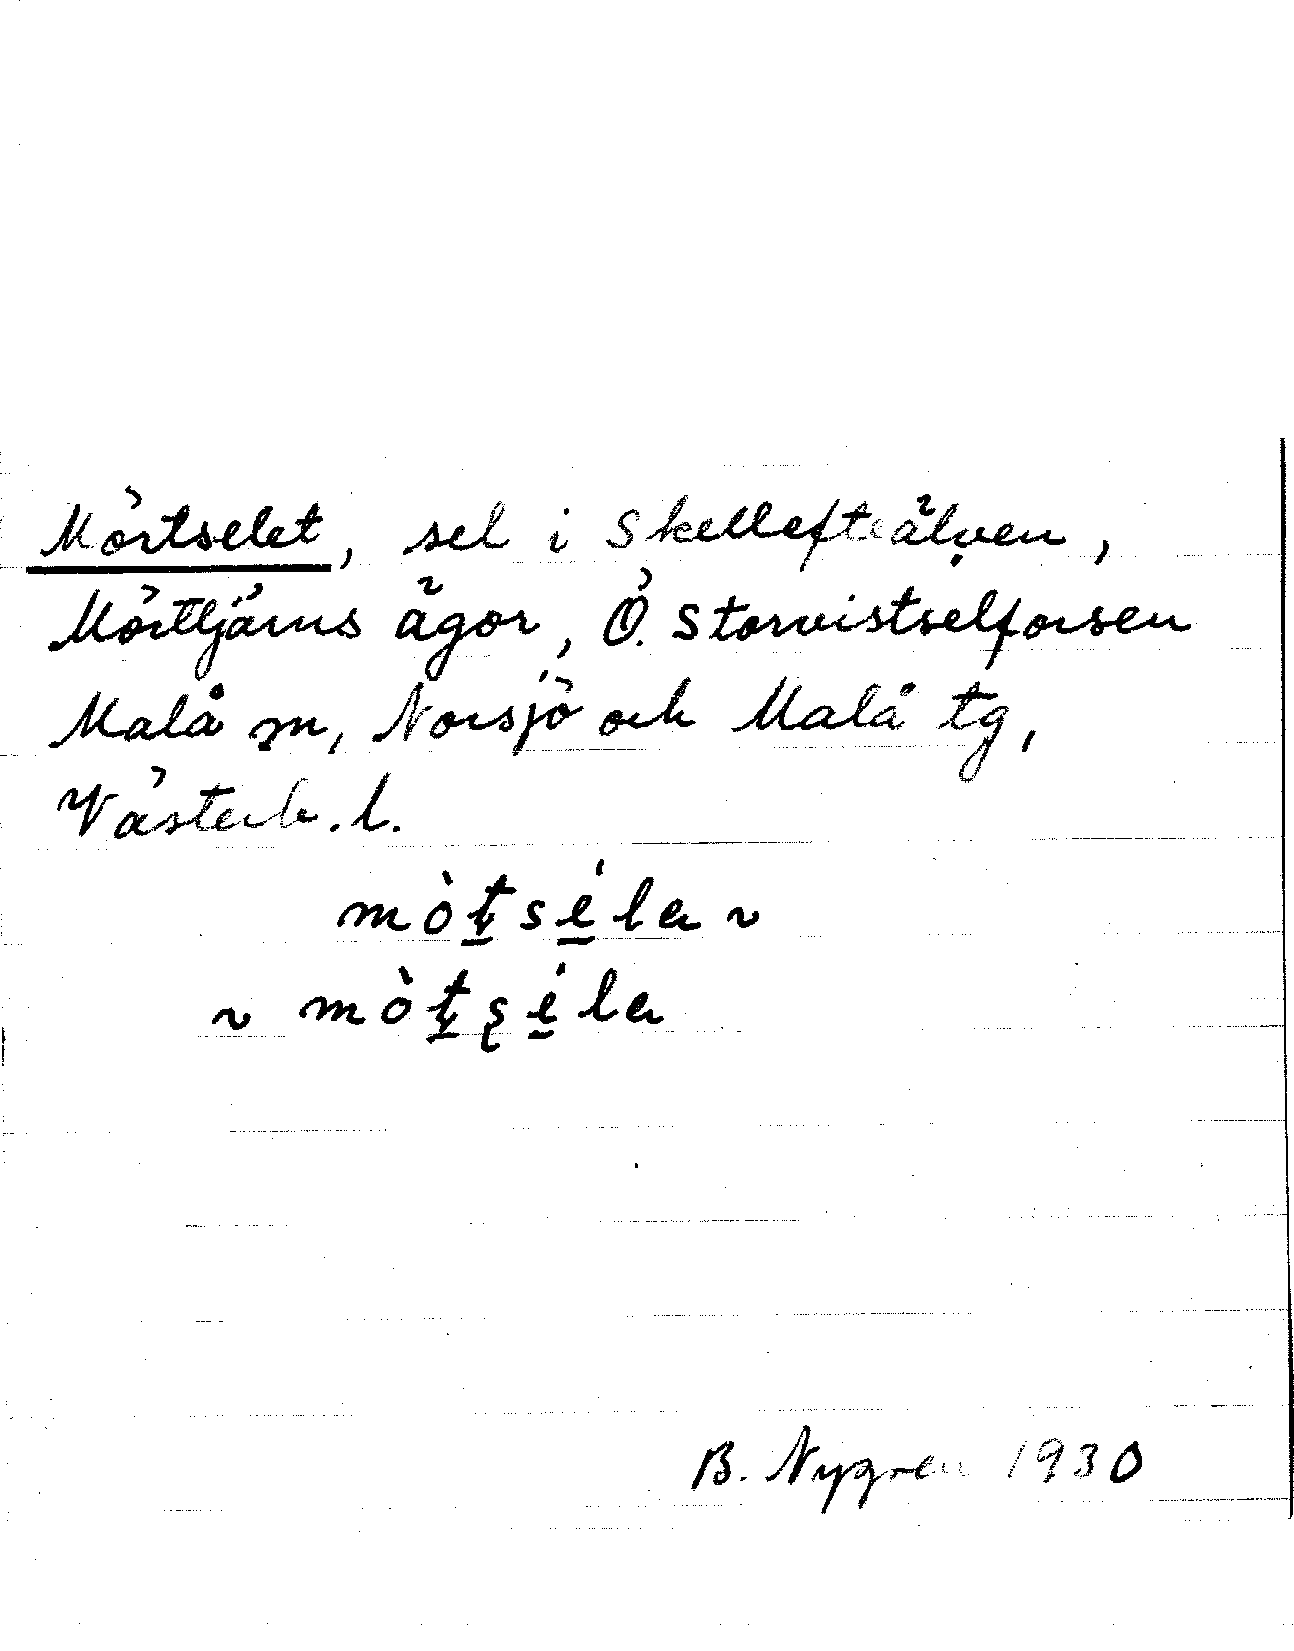 Mörtselet, sel i Skellefteälven,
Mörttjärns ägor, Ö. Storvistselforsen
Malå sn, Norsjö och Malå tg,
Västerb. l.
mò̱tsé̱la ~
~ mò̱tʂé̱la
B. Nygren 1930